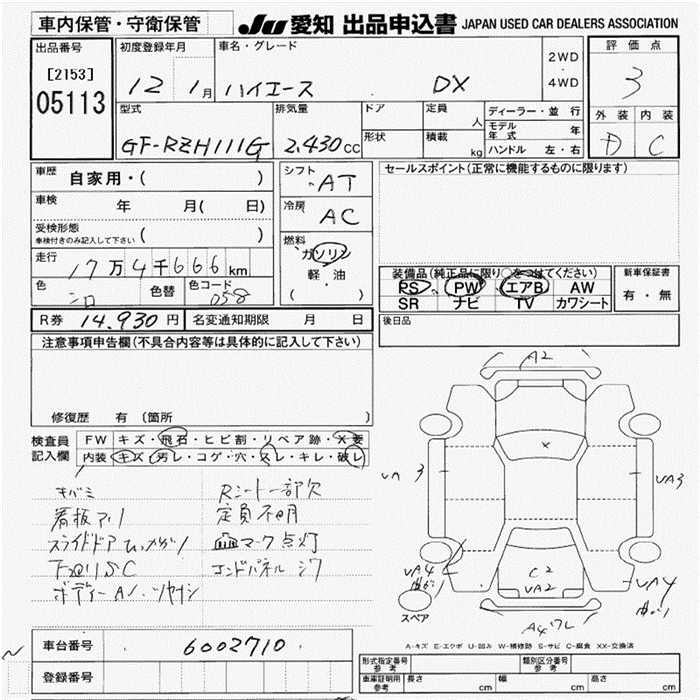 車内保管・守衛保管
JU 愛知 出品申込書 JAPAN USED CAR DEALERS ASSOCIATION
出品番号
[2153]
05113
初度登録年月
12 1月
車名・グレード
ハイエース DX
2WD
・
4WD
評価点
3
外装 内装
D C
型式
GF-RZH111G
排気量
2,430cc
ドア
形状
定員 人
積載 kg
ディーラー・並行
モデル年式 年
ハンドル 左・右
車歴 自家用・( )
車検 年 月( 日)
受検形態
車検付きのみ記入して下さい ( )
走行 17万4千666km
色 シロ 色替 色コード 058
シフト AT
冷房 AC
燃料
ガソリン
軽・油
( )
セールスポイント(正常に機能するものに限ります)
装備品(純正品に限り○をつけてください)
PS PW エアB AW
SR ナビ TV カワシート
新車保証書
有・無
R券 14,930円 名変通知期限 月 日
後日品
注意事項申告欄(不具合内容等は具体的に記入して下さい)
修復歴 有(箇所
検査員記入欄
FW キズ・飛石・ヒビ割・リペア跡・X要
内装 キズ・汚レ・コゲ・穴・スレ・キレ・破レ
キバミ
看板アリ
スライドドア
ボディー
Rシート一部欠
定員不明
マーク点灯
エンドパネル
A2
X
VA 3
VA3
VA4
曲り
C2
VA2
VA4
曲り
A4ワレ
スペア
A-キズ E-エクボ U-凹み W-補修跡 S-サビ C-腐食 XX-交換済
車台番号 6002710
登録番号
形式指定番号 参考
類別区分番号 参考
車庫証明用 参考 長さ cm 幅 cm 高さ cm